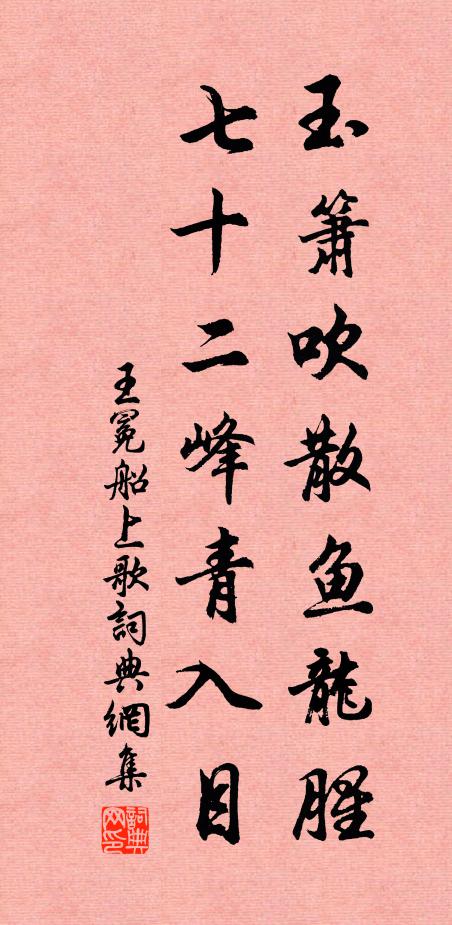 玉簫吹散魚龍腥
七十二峰青入目
王冕船上歌詞典網集
詞典网印